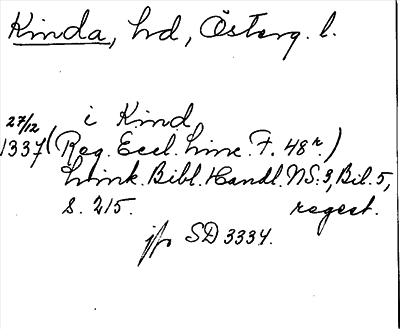 Kinda, hd, Österg. l.
i Kind
27/12
1337 (Reg. Eccl. Linc. F. 48r.)
Link. Bibl. Handl. NS: 3, Bil. 5,
s. 215. regest.
jfr SD 3334.